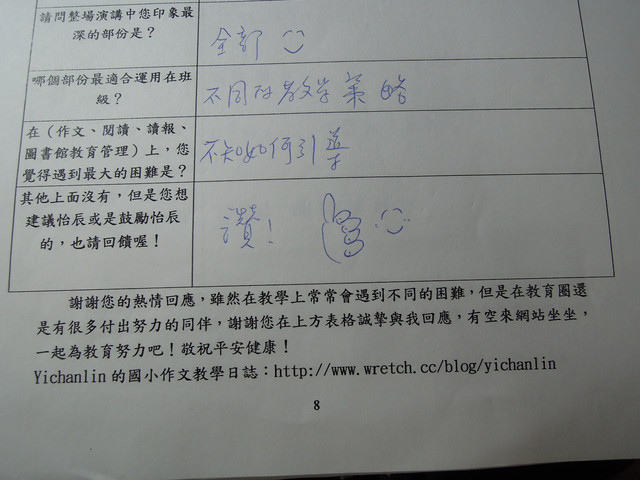 請問整場演講中您印象最
深的部份是？
全部
哪個部份最適合運用在班
級？
不同的教學策略
在（作文、閱讀、讀報、
圖書館教育管理）上，您
覺得遇到最大的困難是？
不知如何引導
其他上面沒有，但是您想
建議怡辰或是鼓勵怡辰
的，也請回饋喔！
讚！
謝謝您的熱情回應，雖然在教學上常常會遇到不同的困難，但是在教育圈還
是有很多付出努力的同伴，謝謝您在上方表格誠摯與我回應，有空來網站坐坐，
一起為教育努力吧！敬祝平安健康！
Yichanlin 的國小作文教學日誌：http://www.wretch.cc/blog/yichanlin
8